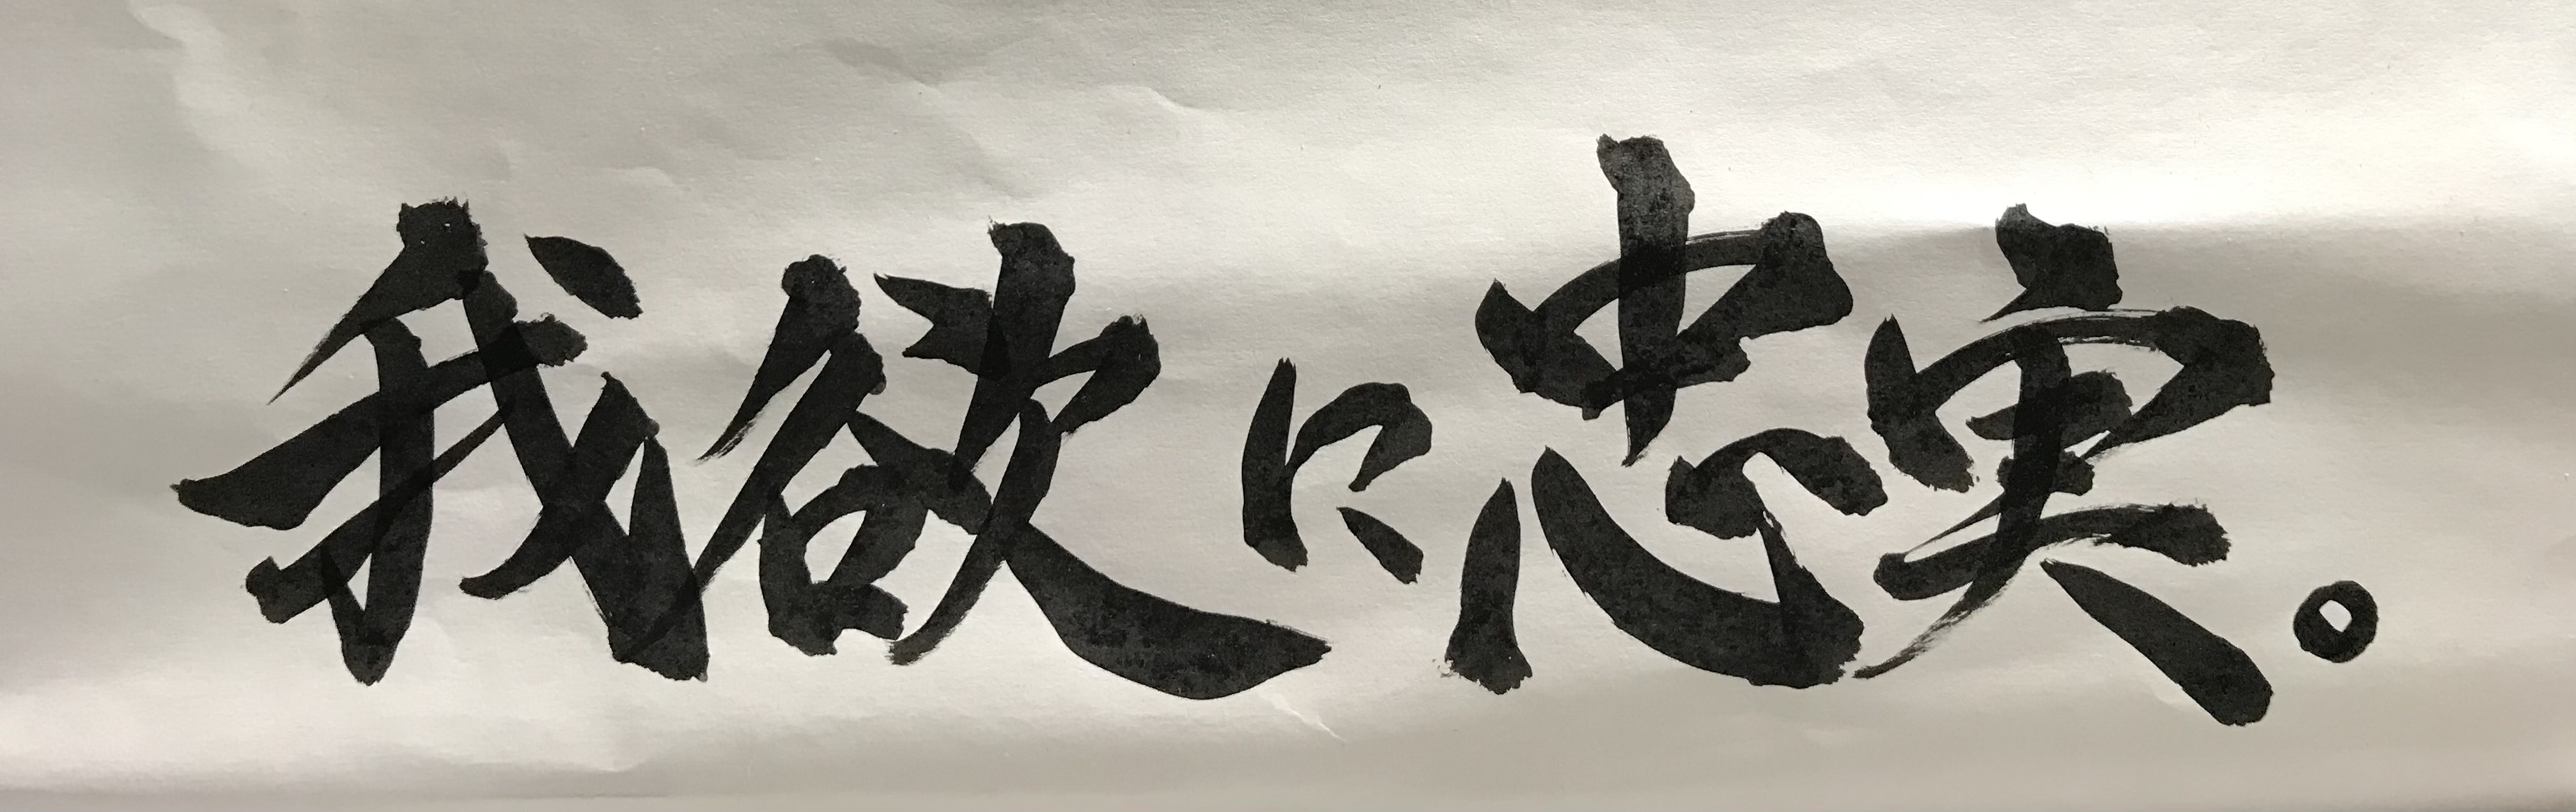 我欲に忠実。